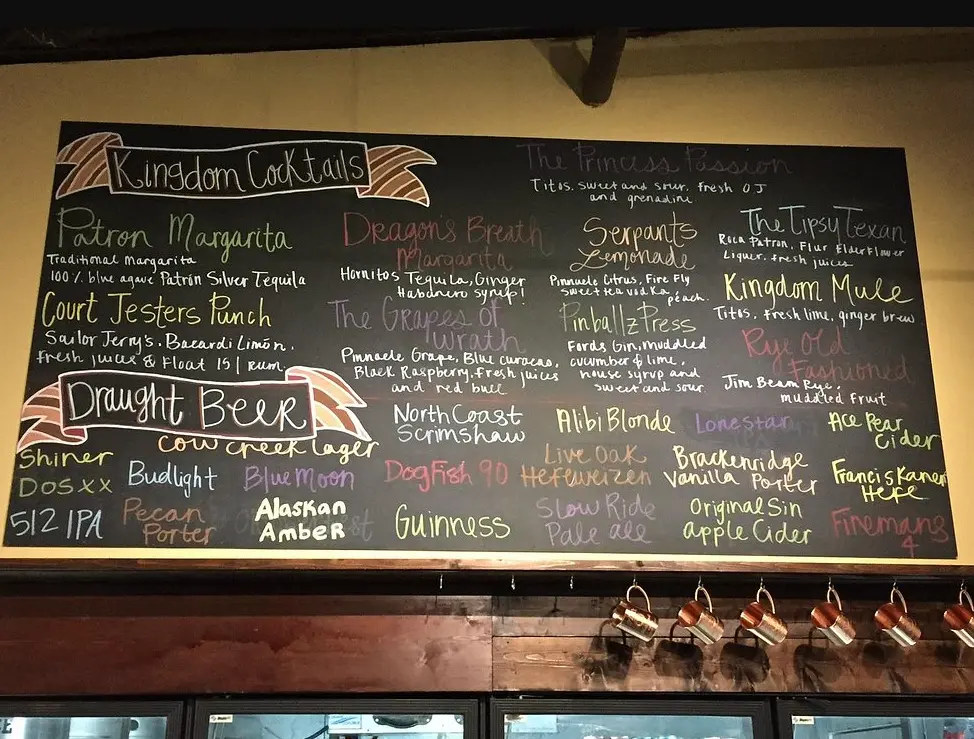 Kingdom Cocktails
Patron Margarita
Traditional Margarita
100% blue agave Patrón Silver Tequila
Court Jesters Punch
Sailor Jerry's, Bacardi Limón,
fresh juices & Float 151 rum.
Dragon's Breath
Margarita
Hornitos Tequila, Ginger
Habanero syrup!
The Grapes of
Wrath
Pinnacle Grape, Blue curacao,
Black Raspberry, fresh juices
and red bull
The Princess Passion
Titos, sweet and sour, fresh OJ
and grenadine
Serpants
Lemonade
Pinnacle Citrus, Fire Fly
sweet tea vodka
peach.
Pinballz Press
Fords Gin, muddled
cucumber & lime,
house syrup and
sweet and sour
The Tipsy Texan
Roca Patron, Flur Elderflower
Liquer, fresh juices
Kingdom Mule
Titos, fresh lime, ginger brew
Rye Old
Fashioned
Jim Beam Rye,
muddled fruit
Draught Beer
Cow Creek Lager
North Coast
Scrimshaw
Alibi Blonde
Lonestar
Ace Pear
Cider
Shiner
Dos XX
Budlight
Blue Moon
DogFish 90
Live Oak
Hefeweizen
Brackenridge
Vanilla Porter
Franciskaner
Hefe
512 IPA
Pecan
Porter
Alaskan
Amber
Guinness
Slow Ride
Pale ale
Original Sin
apple Cider
Firemans
4